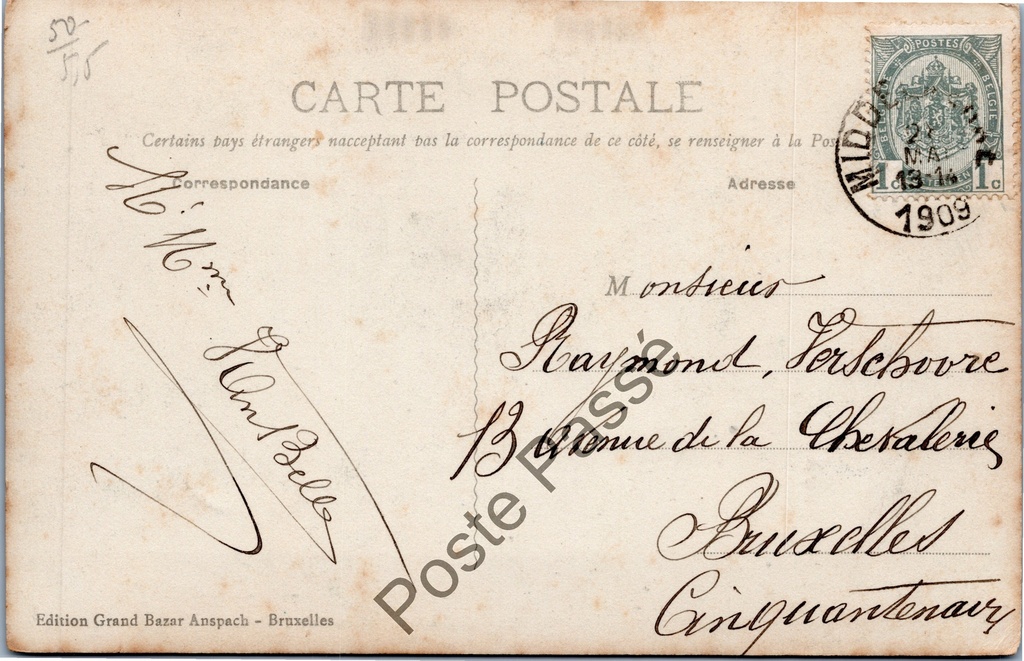 50
5,5
CARTE POSTALE
Certains pays étrangers nacceptant pas la correspondance de ce côté, se renseigner à la Pos
Correspondance
Adresse
POSTES
BELGIE
1c 1c
MIDD
MAI
13-14
1909
M. Mme
VdnBelle
Monsieur
Raymond, Verschovre
13 Avenue de la Chevalerie
Bruxelles
Cinquantenaire
Poste Passé
Edition Grand Bazar Anspach - Bruxelles